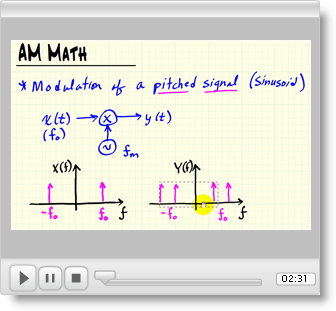 AM MATH
* Modulation of a pitched signal (Sinusoid)
x(t) → × → y(t)
(f₀)
~ fm
X(f) Y(f)
-f₀ f₀ f -f₀ f₀ f
02:31